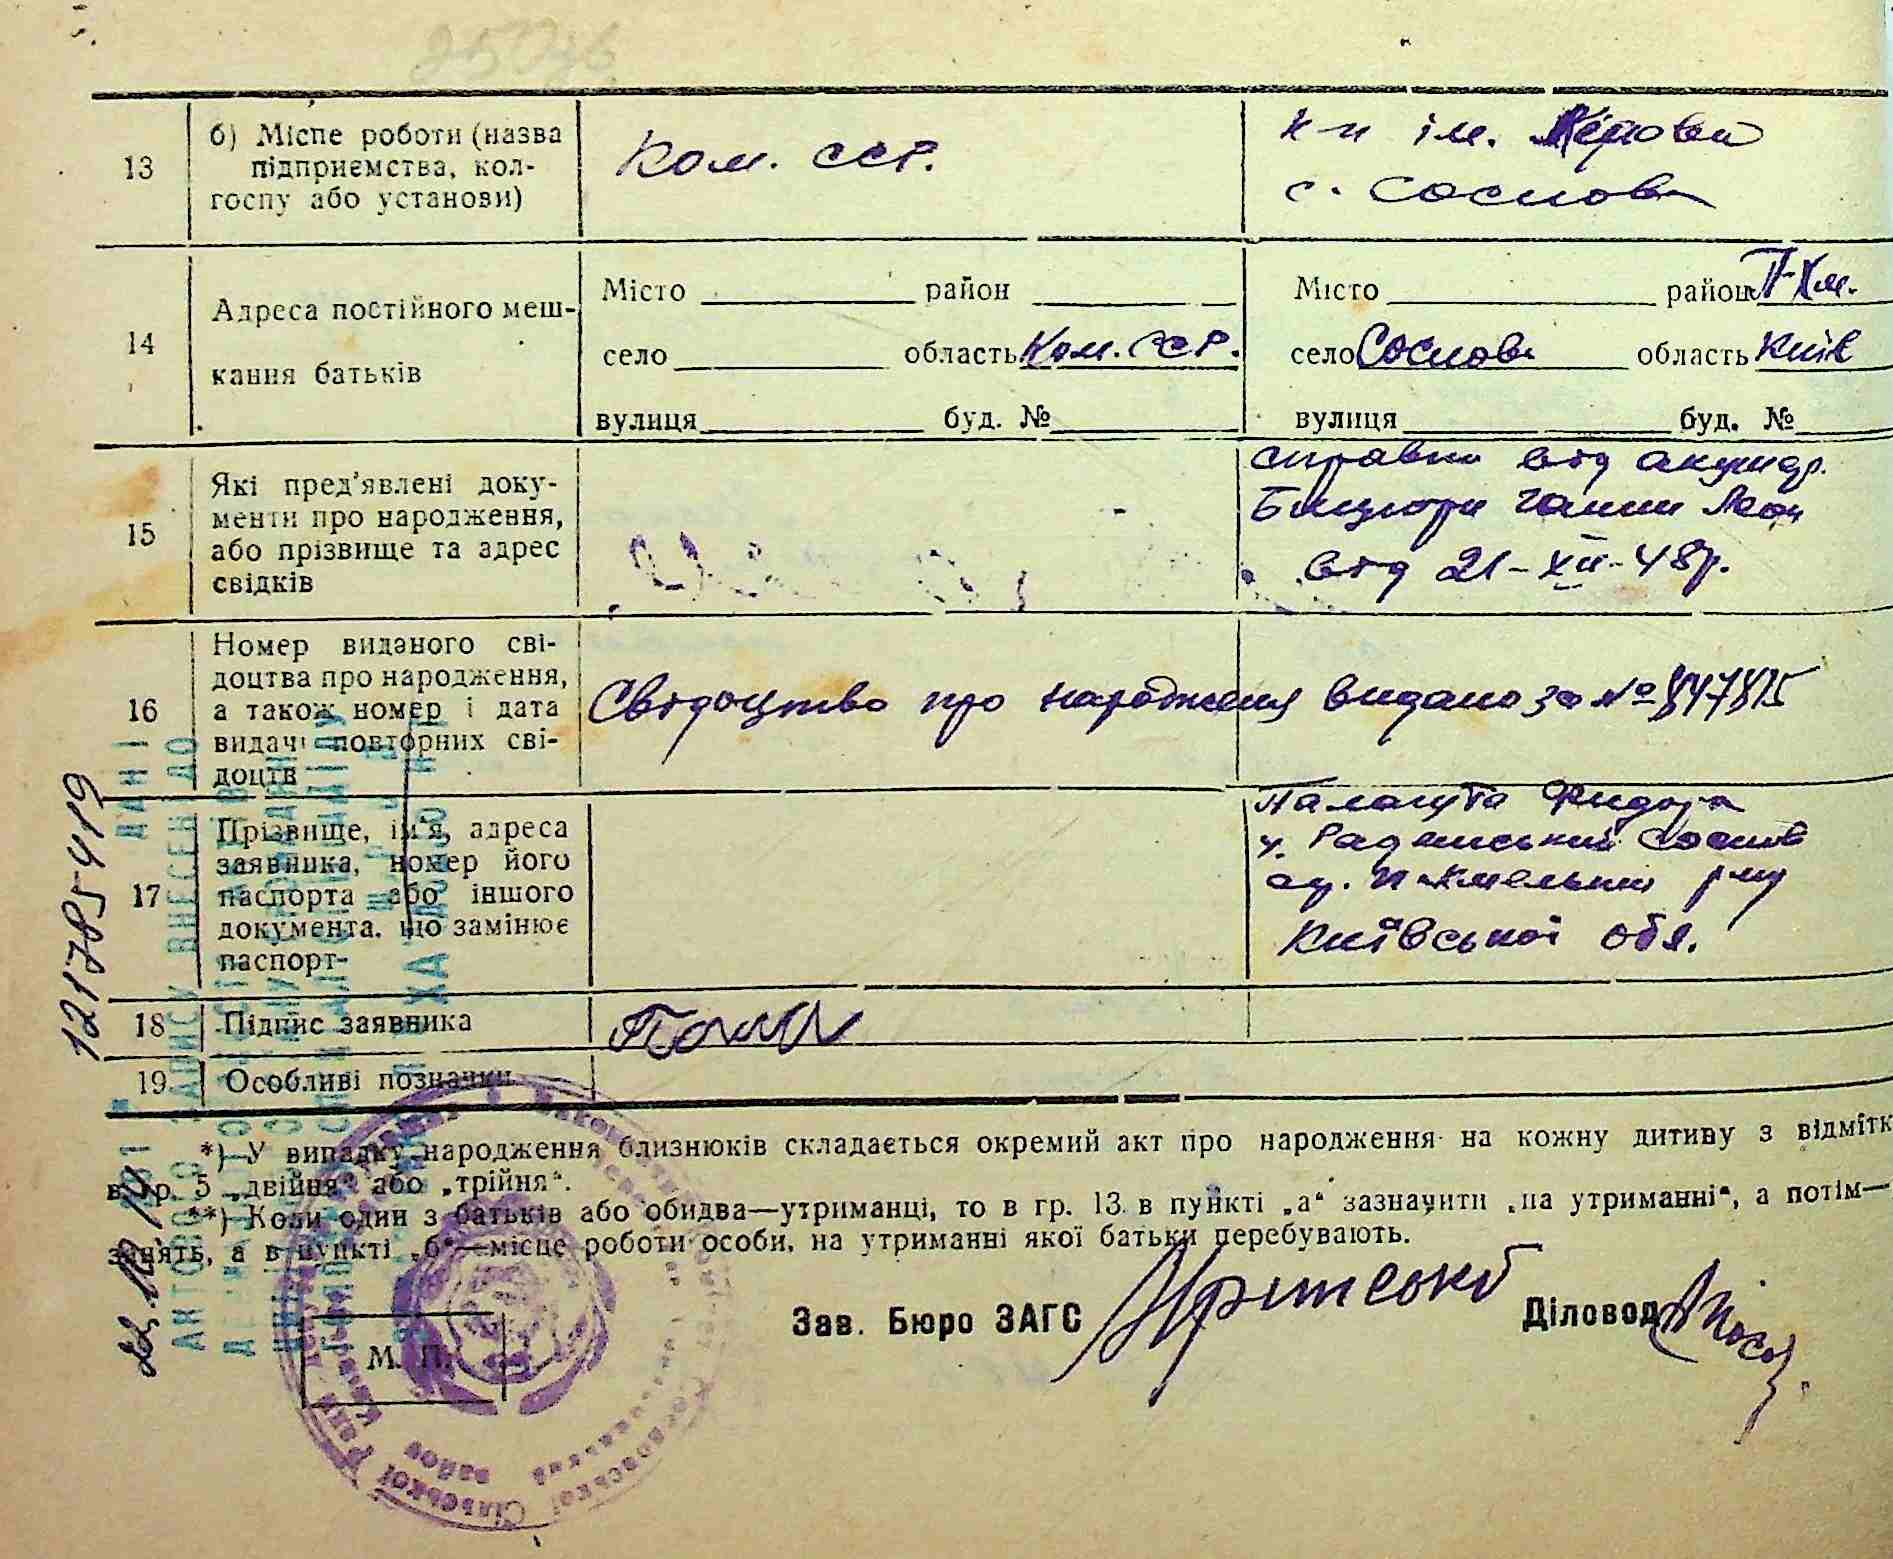 13
б) Місце роботи (назва
підприємства, кол-
госпу або установи)
Ком. ССР.
к-п ім. Кірова
с. Соснова
14
Адреса постійного меш-
кання батьків
Місто район
село область Ком. ССР.
вулиця буд. №
Місто район П-Хм.
село Соснова область Київ
вулиця буд. №
15
Які пред’явлені доку-
менти про народження,
або прізвище та адрес
свідків
справка від акушер.
Ганни
від 21-XII-48р.
16
Номер виданого сві-
доцтва про народження,
а також номер і дата
видачі повторних сві-
доцтв
Свідоцтво про народження видано за № 847815
17
Прізвище, ім’я, адреса
заявника, номер його
паспорта або іншого
документа, що замінює
паспорт-
Палагута
Соснов
П-Хмельни р-ну
Київської обл.
18
Підпис заявника
19
Особливі позначки
*) У випадку народження близнюків складається окремий акт про народження на кожну дитину з відмітк
в гр. 5 „двійня“ або „трійня“.
**) Коли один з батьків або обидва—утриманці, то в гр. 13 в пункті „а“ зазначити „на утриманні“, а потім—
занять, а в пункті „б“—місце роботи особи, на утриманні якої батьки перебувають.
Зав. Бюро ЗАГС
Діловод
М. П.
Сільської Ради
район
121785419
ДАНІ
АКТОВОГО ЗАПИСУ ВНЕСЕНІ ДО